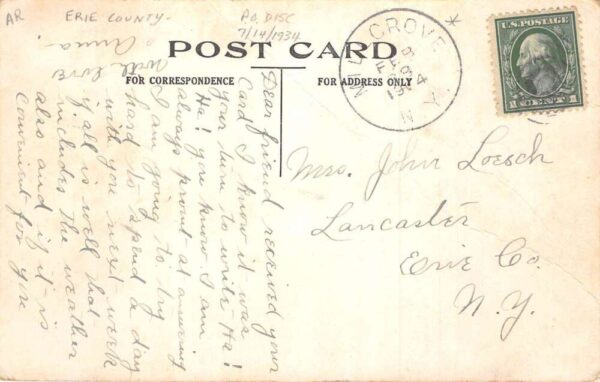 AR ERIE COUNTY. P.O. DISC
7/14/1934
POST CARD
FOR CORRESPONDENCE
FOR ADDRESS ONLY
MILL GROVE
N.Y.
U.S. POSTAGE
1 CENT 1
Mrs. John Loesch
Lancaster
Erie Co.
N.Y.
Dear friend received your
card I know it was
your turn to write Ha!
Ha! you know I am
always prompt at answering
I am going to try
hard to spend a day
with you next week
if all is well that
includes the weather
also and if it is
convenient for you
With love
Anna.